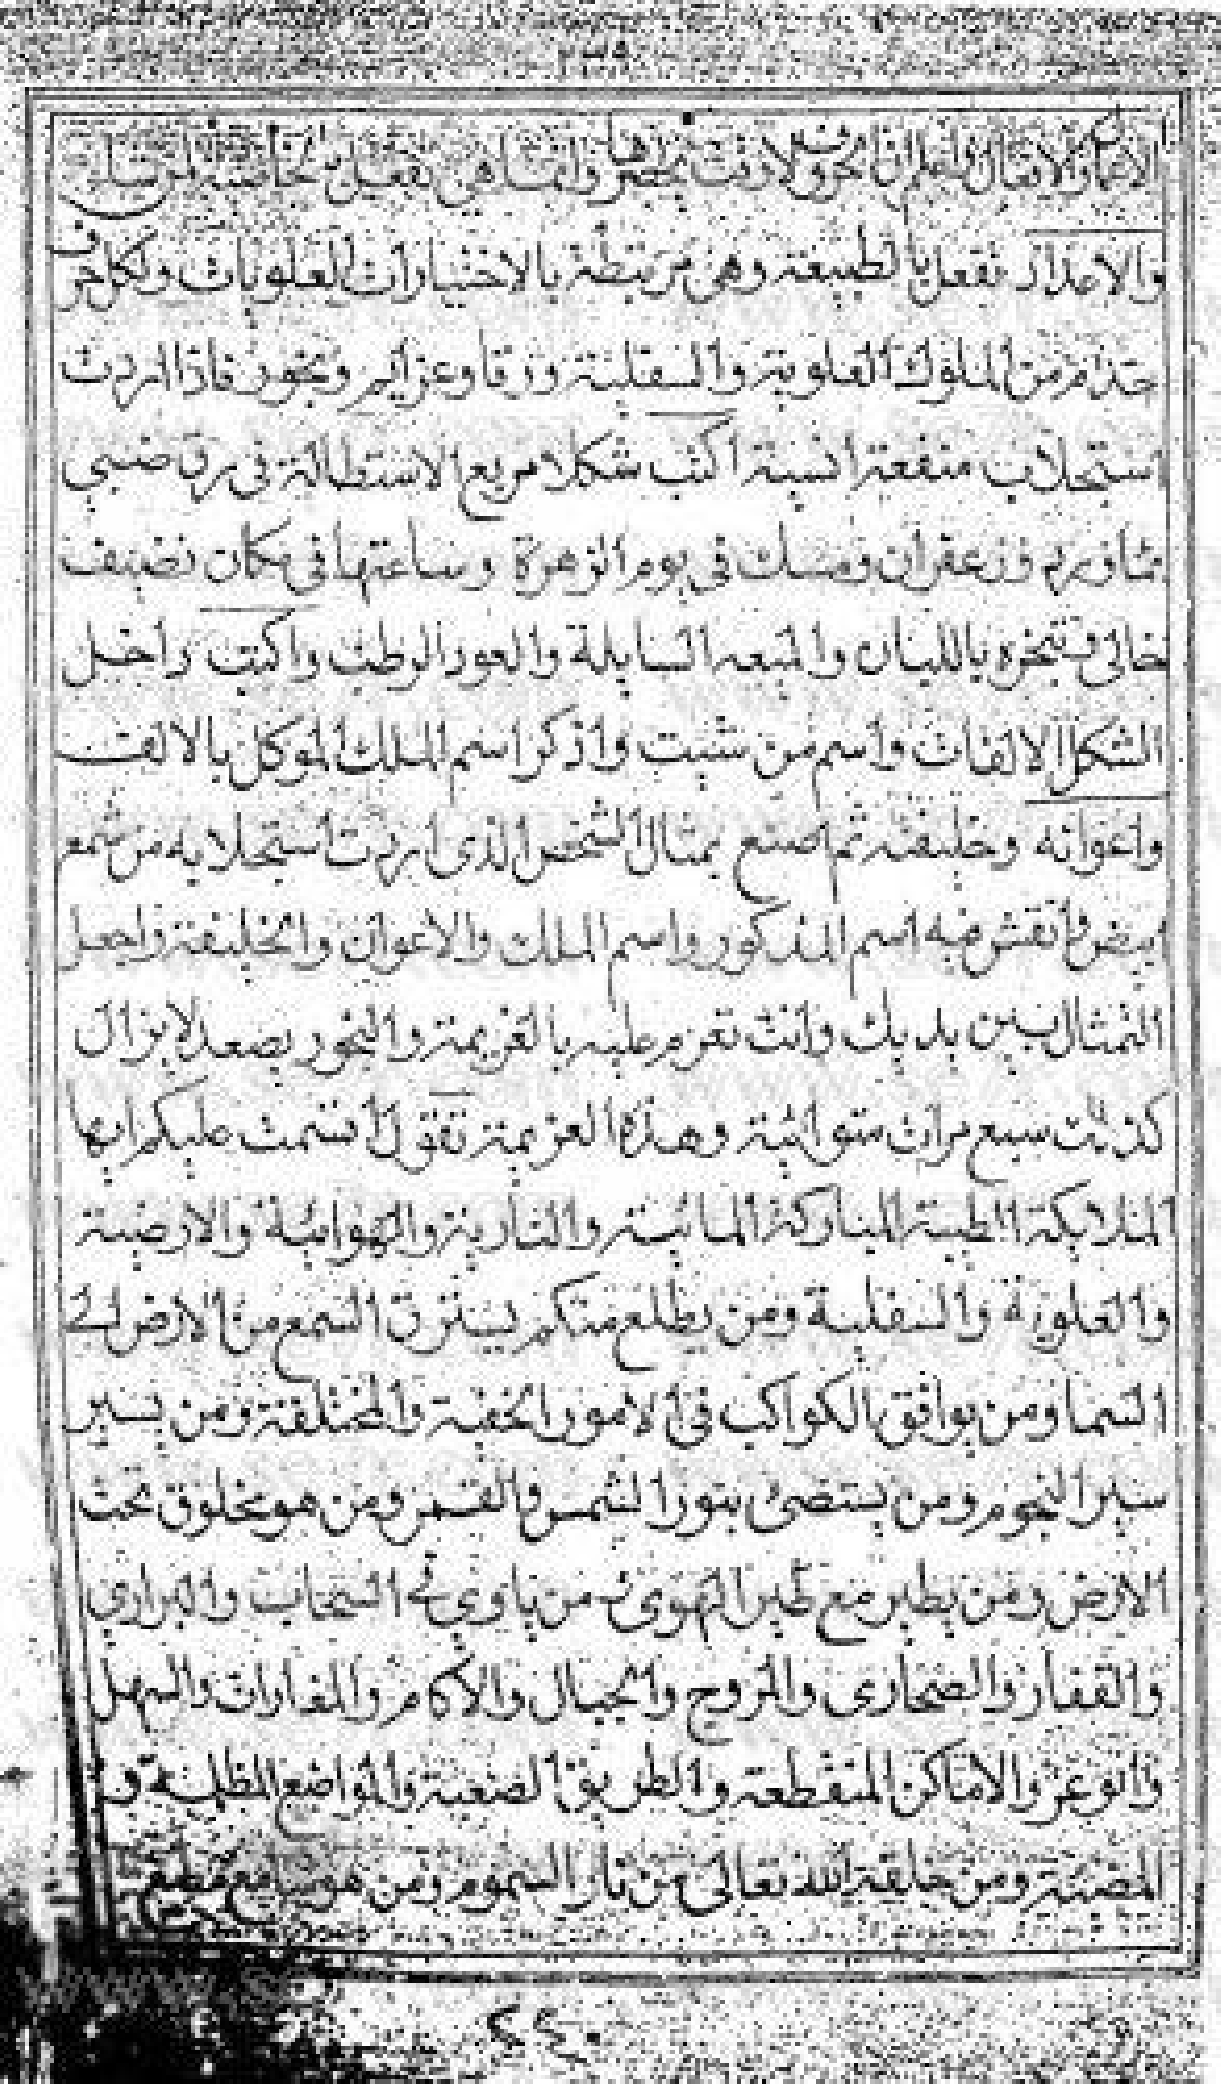 الاعمال واعلم ان الحروف لا وقت يحصرها وانما هي تفعل بخاصيتها
والاعداد تفعل بالطبيعة وهي مرتبطة بالاختيارات العلويات ولكل حرف
خدام من الملوك العلوية والسفلية ورقا وعزايم وبخور فاذا اردت
استجلاب منفعة انسية اكتب شكلا مربع الاستطالة في رق ضبي
بماورد وزعفران ومسك في يوم الزهرة وساعتها في مكان نضيف
خالى وتبخره باللبان والميعه السايلة والعود الرطب واكتب داخل
الشكل الالفات واسم من شيت واذكر اسم الملك الموكل بالالف
واعوانه وخليفته ثم اصنع تمثال الشخص الذى اردت استجلابه من شمع
ابيض وانقش فيه اسم المذكور واسم الملك والاعوان والخليفة واجعل
التمثال بين يديك وانت تعزم عليه بالعزيمة والبخور يصعد لا يزال
كذلك سبع مرات متوالية وهذه العزيمة تقول اقسمت عليكم ايها
الملايكة الطيبة المباركة المائية والنارية والهوائية والارضية
والعلوية والسفلية ومن يطلع منكم يسترق السمع من الارض الى
السما ومن يوافق الكواكب في الامور الخفية والمختلفة ومن يسير
سير النجوم ومن يستضئ بنور الشمس والقمر ومن هو مخلوق تحت
الارض ومن يطير مع طير الهوى من ياوي في السحاب والبراري
والقفار والصحارى والمروج والجبال والاكام والمغارات والسهل
والوعر والاماكن المنقطعة والطريق الصعبة والمواضع المظلمة و
المضيئة ومن خلقه الله تعالى من نار السموم ومن هو سامع مطيع
٢٤٠